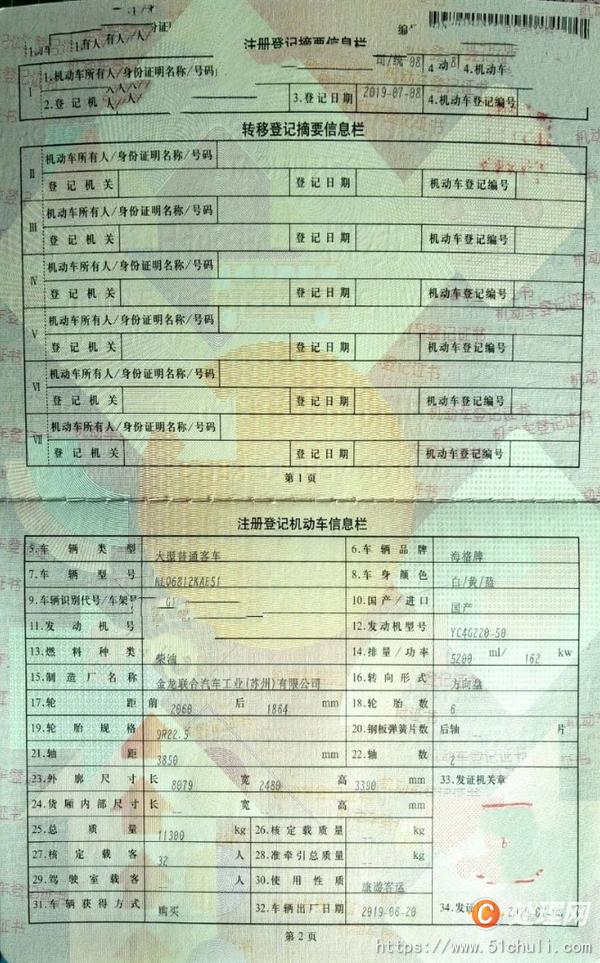 注册登记摘要信息栏
1.机动车所有人/身份证明名称/号码 4.机动车
Ⅰ
2.登记机 3.登记日期 2019-07-08 4.机动车登记编号
转移登记摘要信息栏
Ⅱ 机动车所有人/身份证明名称/号码
登记机关 登记日期 机动车登记编号
Ⅲ 机动车所有人/身份证明名称/号码
登记机关 登记日期 机动车登记编号
Ⅳ 机动车所有人/身份证明名称/号码
登记机关 登记日期 机动车登记编号
Ⅴ 机动车所有人/身份证明名称/号码
登记机关 登记日期 机动车登记编号
Ⅵ 机动车所有人/身份证明名称/号码
登记机关 登记日期 机动车登记编号
Ⅶ 机动车所有人/身份证明名称/号码
登记机关 登记日期 机动车登记编号
第1页
注册登记机动车信息栏
5.车辆类型 大型普通客车 6.车辆品牌 海格牌
7.车辆型号 KLQ6812KAE51 8.车身颜色 白/黄/蓝
9.车辆识别代号/车架号 10.国产/进口 国产
11.发动机号 12.发动机型号 YC4G220-50
13.燃料种类 柴油 14.排量/功率 5200 ml/ 162 kw
15.制造厂名称 金龙联合汽车工业(苏州)有限公司 16.转向形式 方向盘
17.轮距 前 2060 后 1864 mm 18.轮胎数 6
19.轮胎规格 9R22.5 20.钢板弹簧片数 后轴 片
21.轴距 3850 mm 22.轴数 2
23.外廓尺寸 长 8079 宽 2480 高 3390 mm 33.发证机关章
24.货厢内部尺寸 长 宽 高 mm
25.总质量 11300 kg 26.核定载质量 kg
27.核定载客 32 人 28.准牵引总质量 kg
29.驾驶室载客 人 30.使用性质 旅游客运
31.车辆获得方式 购买 32.车辆出厂日期 2019-06-20 34.发证
第2页
https://www.51chuli.com